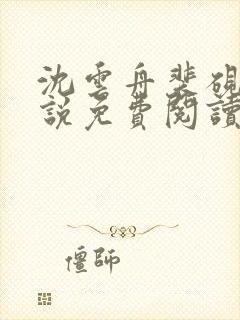 沈雲舟裴硯
說免費閱讀
僵師